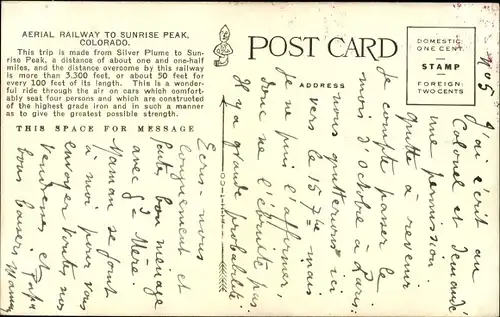 AERIAL RAILWAY TO SUNRISE PEAK,
COLORADO.
This trip is made from Silver Plume to Sun-
rise Peak, a distance of about one and one-half
miles, and the distance overcome by this railway
is more than 3,300 feet, or about 50 feet for
every 100 feet of its length. This is a wonder-
ful ride through the air on cars which comfort-
ably seat four persons and which are constructed
of the highest grade iron and in such a manner
as to give the greatest possible strength.
THIS SPACE FOR MESSAGE
POST CARD
ADDRESS
DOMESTIC
ONE CENT
STAMP
FOREIGN
TWO CENTS
No 5
J'ai écrit au
Colonel et demandé
une permission
quitte à revenir.
Je compte passer le
mois d'Octobre à Paris:
nous quitterions ici
vers le 15 7bre mais
je ne puis l'affirmer,
donc ne l'ébruite pas
Il y a grande probabilité.
Ecris-nous
longuement et
faites bon ménage
avec Gd Mère.
Maman se joint
à moi pour vous
envoyer toutes nos
tendresses et
bons baisers